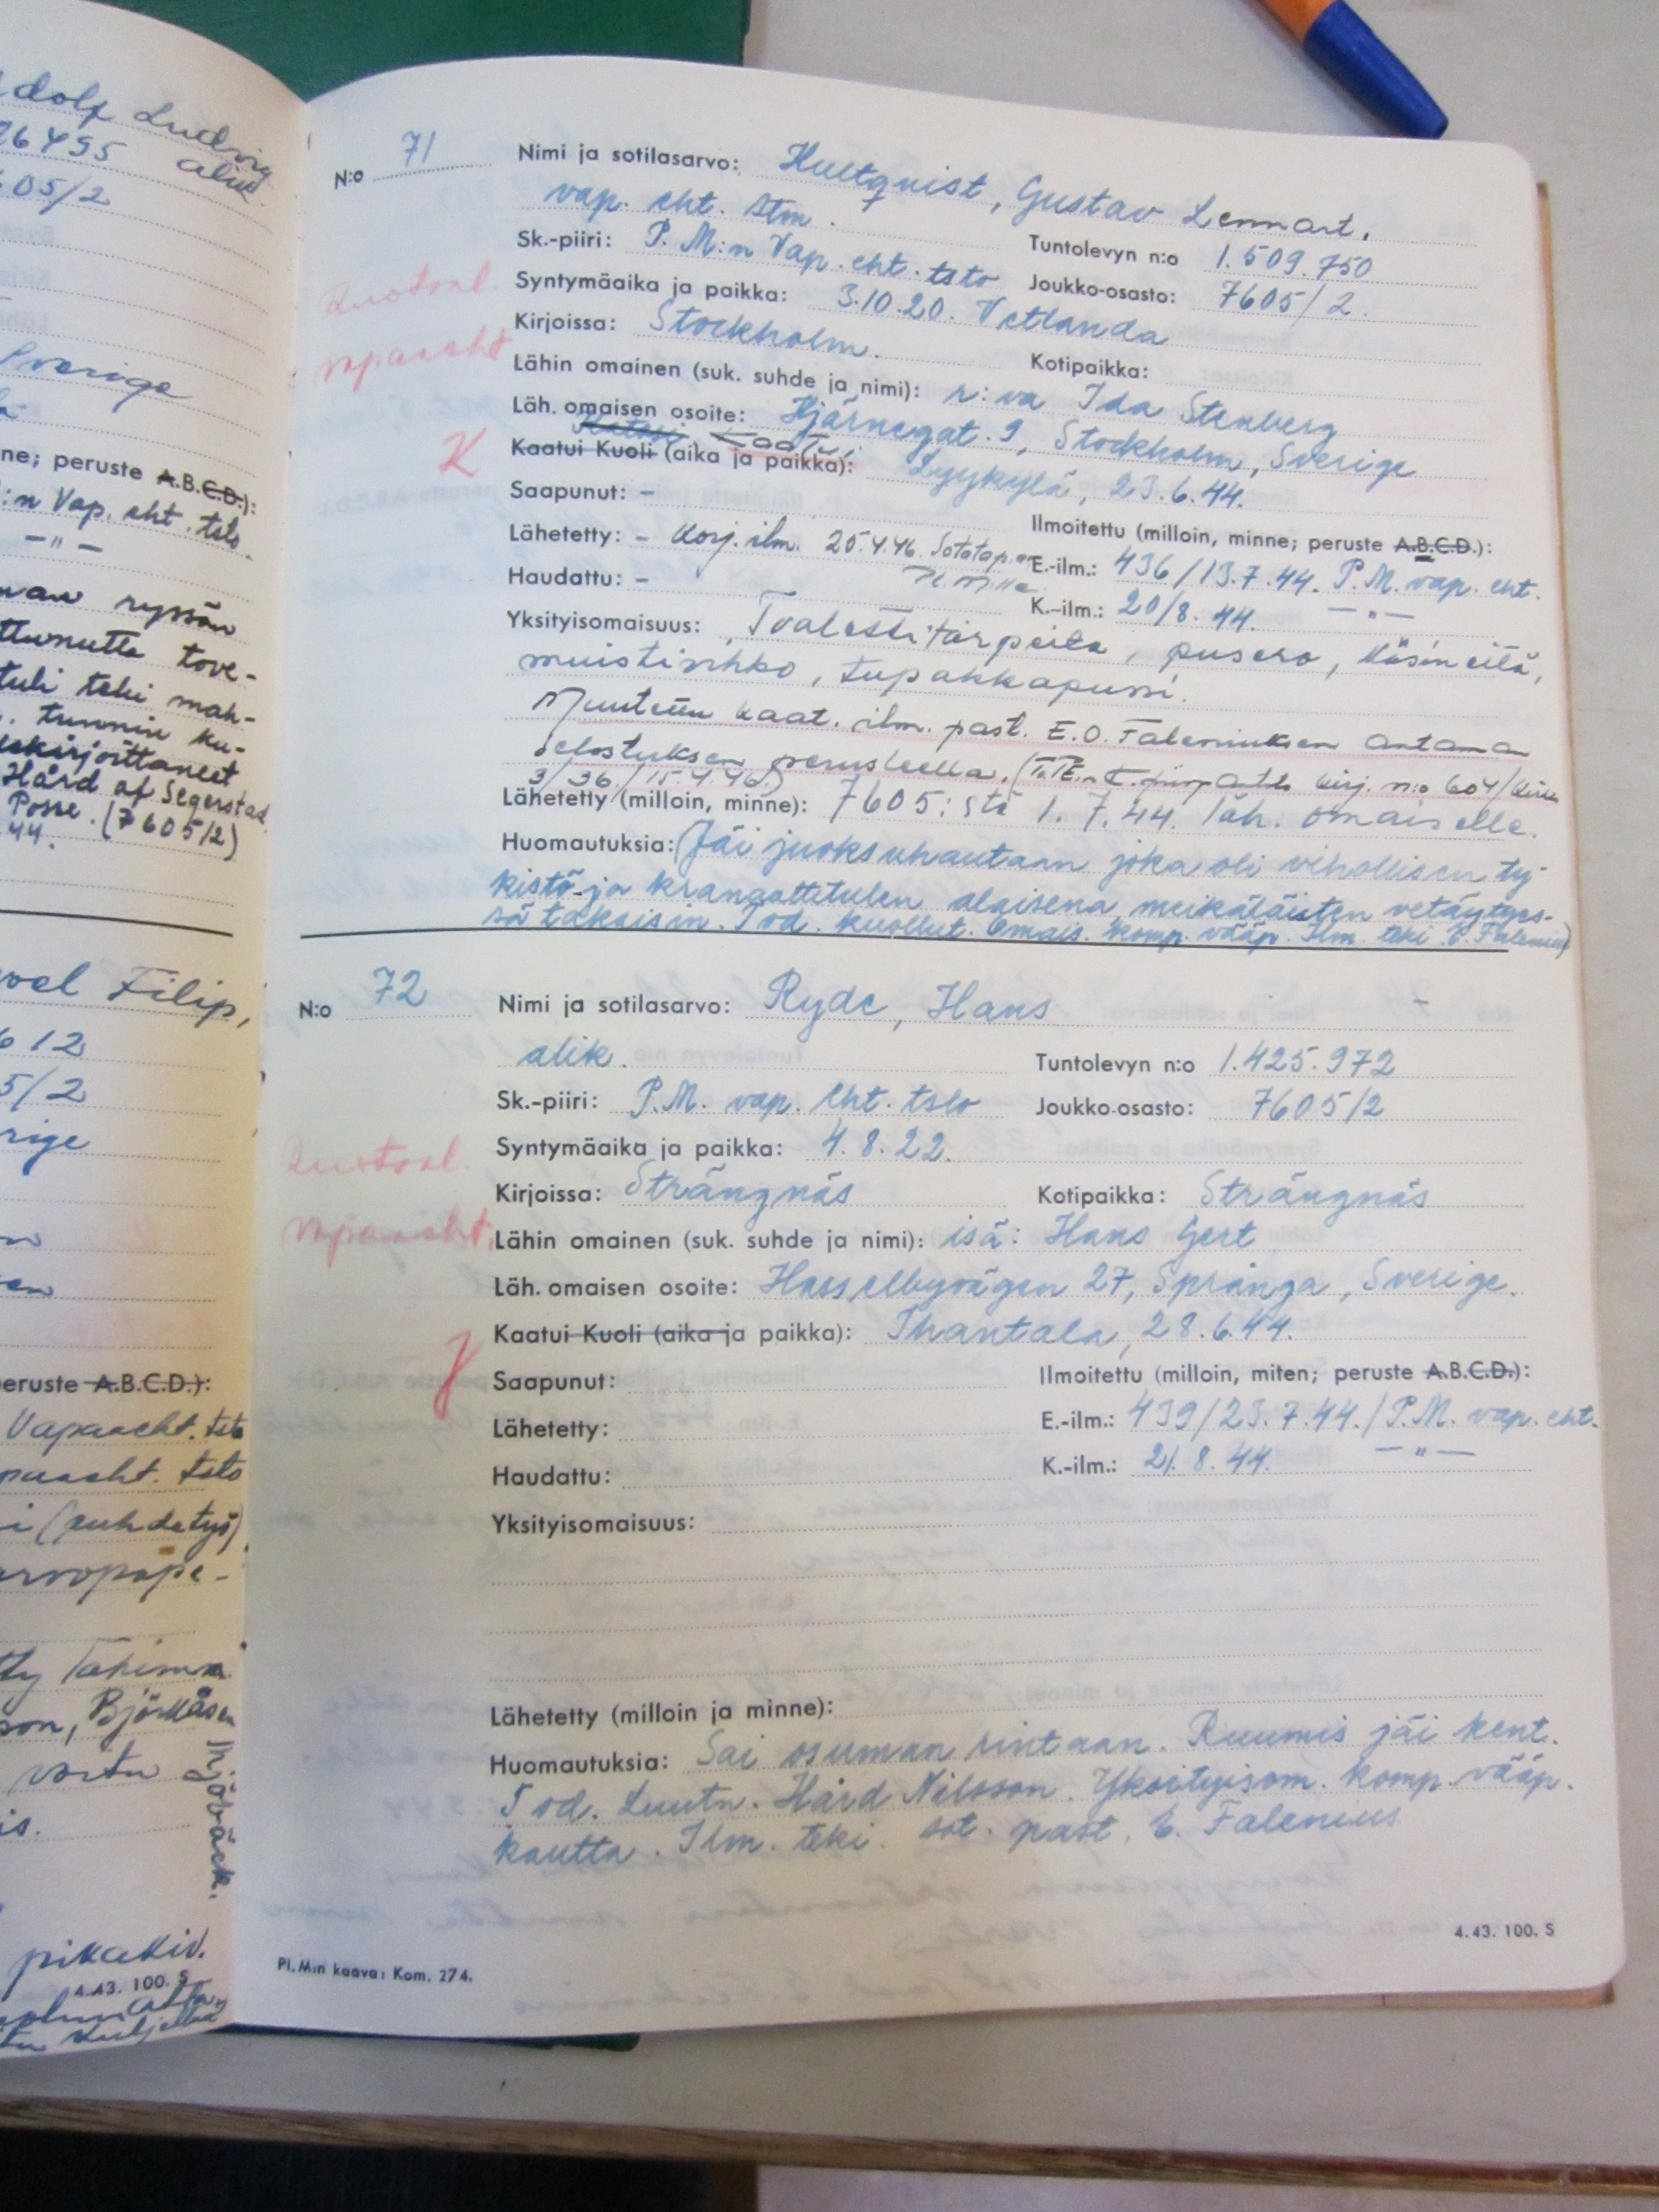 dolf Ludvig
26495 alik.
605/2
Sverige
ne; peruste A.B.C.D.):
:n Vap. eht. tsto.
— " —
ryssän
ttunutta tove-
tuli teki mah-
. tunnin ku-
lekirjoittaneet
Hård af Segerstad
Posse. (7605/2)
44.
Filip,
612
5/2
rige
peruste A.B.C.D.):
Vapaaeht. tsto
paaeht. tsto
i (puhdetyö)
arvopape-
son, Björkåsen
Mjöbäck.
is.
pikakiv.
4.43. 100. S
N:o 71
Nimi ja sotilasarvo: Hultqvist, Gustav Lennart.
vap. eht. stm.
Sk.-piiri: P.M:n Vap. eht. tsto Tuntolevyn n:o 1.509.750
Syntymäaika ja paikka: 3.10.20. Vetlanda Joukko-osasto: 7605/2.
Ruotsal.
Kirjoissa: Stockholm. Kotipaikka:
vapaaeht.
Lähin omainen (suk. suhde ja nimi): r:va Ida Stenberg
Läh. omaisen osoite: Hjärnegat. 9, Stockholm, Sverige
Katosi Kaatui
K Kaatui Kuoli (aika ja paikka): Lyykylä, 23.6.44.
Saapunut: - Ilmoitettu (milloin, minne; peruste A.B.C.D.):
Lähetetty: - Korj. ilm. 25.4.46. E.-ilm.: 436/13.7.44. P.M. vap. eht.
Haudattu: - K.-ilm.: 20/8.44. — " —
Yksityisomaisuus: Toalettitarpeita, pusero, käsineitä,
muistivihko, tupakkapussi.
Muutettu kaat. ilm. past. E.O. Faleniuksen antama
selostuksen perusteella. kirj. n:o 604/
3/36./15.4.46.)
Lähetetty (milloin, minne): 7605:stä 1.7.44. läh. omaiselle.
Huomautuksia: (Jäi juoksuhautaan joka oli vihollisen ty-
kistö- ja kranaattitulen alaisena meikäläisten vetäytyes-
sä takaisin. Tod. kuollut. Omais. komp. vääp. Ilm. teki E. Falenius)
N:o 72
Nimi ja sotilasarvo: Ryde, Hans -
alik. Tuntolevyn n:o 1.425.972
Sk.-piiri: P.M. vap. eht. tsto Joukko-osasto: 7605/2
Ruotsal.
Syntymäaika ja paikka: 4.8.22.
Kirjoissa: Strängnäs Kotipaikka: Strängnäs
vapaaeht.
Lähin omainen (suk. suhde ja nimi): isä: Hans Gert
Läh. omaisen osoite: Hasselbyvägen 27, Spånga, Sverige.
Kaatui Kuoli (aika ja paikka): Ihantala, 28.6.44.
Saapunut: Ilmoitettu (milloin, miten; peruste A.B.C.D.):
Lähetetty: E.-ilm.: 439/23.7.44./P.M. vap. eht.
Haudattu: K.-ilm.: 21.8.44. — " —
Yksityisomaisuus:
Lähetetty (milloin ja minne):
Huomautuksia: Sai osuman rintaan. Ruumis jäi kent.
Tod. Luutn. Hård Nilsson. Yksityisom. komp. vääp.
kautta. Ilm. teki. sot. past. E. Falenius
Pl. Min kaava: Kom. 274.
4.43. 100. S